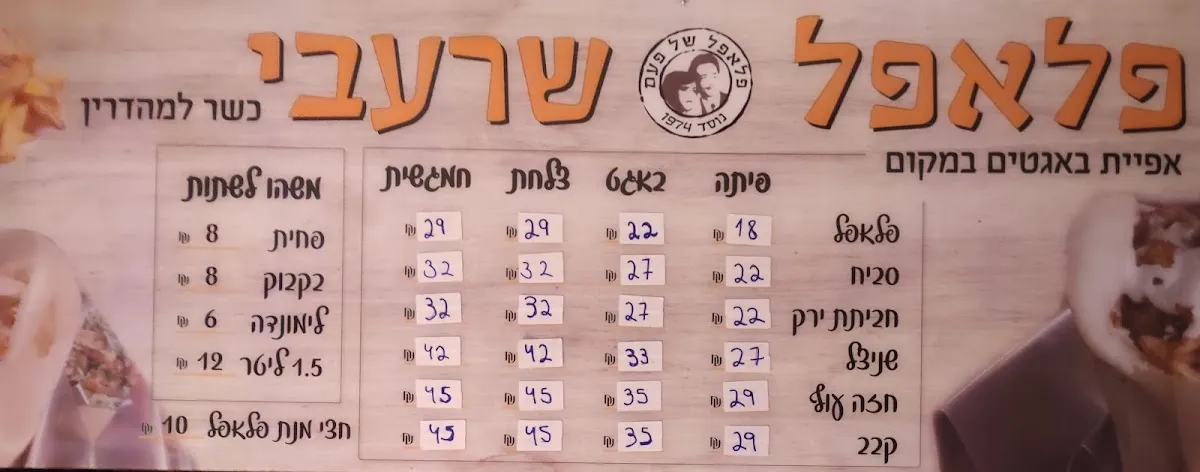 פלאפל שרעבי
פלאפל של פעם
נוסד 1974
כשר למהדרין
אפיית באגטים במקום
פיתה באגט צלחת חמגשית
פלאפל 18 ₪ 22 ₪ 29 ₪ 29 ₪
סביח 22 ₪ 27 ₪ 32 ₪ 32 ₪
חביתת ירק 22 ₪ 27 ₪ 32 ₪ 32 ₪
שניצל 27 ₪ 33 ₪ 42 ₪ 42 ₪
חזה עוף 29 ₪ 35 ₪ 45 ₪ 45 ₪
קבב 29 ₪ 35 ₪ 45 ₪ 45 ₪
משהו לשתות
פחית 8 ₪
בקבוק 8 ₪
לימונדה 6 ₪
1.5 ליטר 12 ₪
חצי מנת פלאפל 10 ₪